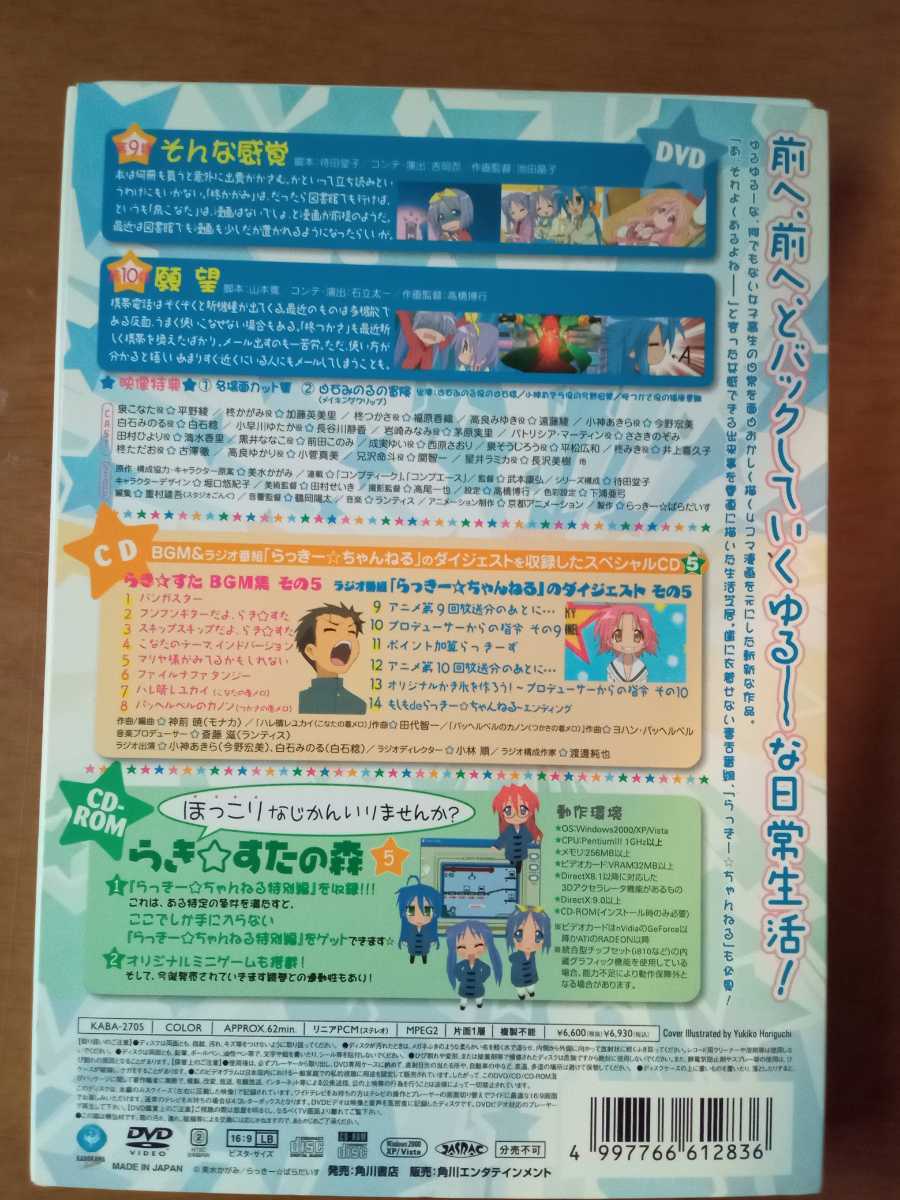 前へ、前へとバックしていくゆる～な日常生活！
ゆるゆるーな、何でもない女子高生の日常を面白おかしく描く4コマ漫画を元にした斬新な作品。
「あ、それよくあるよねー」と言った共感できる出来事を普通に描いた生活芝居。歯に衣着せない毒舌番組、「らっきー☆ちゃんねる」も必見！
DVD
9 そんな感覚 脚本:待田堂子／コンテ・演出:吉岡忍 作画監督:池田晶子
本は何冊も買うと意外に出費がかさむ。かといって立ち読みとい
うわけにもいかない。「柊かがみ」は、だったら図書館でも行けば、
というも「泉こなた」は、漫画はないでしょ、と漫画が前提のようだ。
最近は図書館でも漫画も少しだが置かれるようになったらしいが。
10 願望 脚本:山本寛 コンテ・演出:石立太一／作画監督:高橋博行
携帯電話はぞくぞくと新機種が出てくる。最近のものは多機能で
ある反面、うまく使いこなせない場合もある。「柊つかさ」も最近新
しく携帯を換えたばかり。メール出すのも一苦労。ただ、使い方が
分かると嬉しい あまりすぐ近くにいる人にもメールしてしまうことも。
★映像特典★ ① 名場面カット集 ② 白石みのるの冒険 (メイキングクリップ)
CAST
泉こなた役☆平野綾／柊かがみ役☆加藤英美里／柊つかさ役☆福原香織／高良みゆき役☆遠藤綾／小神あきら役☆今野宏美
白石みのる役☆白石稔／小早川ゆたか役☆長谷川静香／岩崎みなみ役☆茅原実里／パトリシア・マーティン役☆ささきのぞみ
田村ひより役☆清水香里／黒井ななこ役☆前田このみ／成実ゆい役☆西原さおり／泉そうじろう役☆平松広和／柊みき役☆井上喜久子
柊ただお役☆古澤徹／高良ゆかり役☆小菅真美／兄沢命斗役☆関智一／星井ラミカ役☆長沢美樹 他
原作・構成協力・キャラクター原案☆美水かがみ／連載☆「コンプティーク」、「コンプエース」／監督☆武本康弘／シリーズ構成☆待田堂子
キャラクターデザイン☆堀口悠紀子／美術監督☆田村せいき／撮影監督☆高尾一也／設定☆高橋博行／色彩設定☆下浦亜弓
編集☆重村建吾(スタジオごんぐ)／音響監督☆鶴岡陽太／音楽☆ランティス／アニメーション制作☆京都アニメーション／製作☆らっきー☆ぱらだいす
CD
BGM&ラジオ番組「らっきー☆ちゃんねる」のダイジェストを収録したスペシャルCD 5
らき☆すた BGM集 その5
1 バンガスター
2 フンフンギターだよ、らき☆すた
3 スキップスキップだよ、らき☆すた
4 こなたのテーマ、インドバージョン
5 マリヤ様がみてるかもしれない
6 ファイルナファタンジー
7 ハレ晴レユカイ (こなたの着メロ)
8 パッヘルベルのカノン (つかさの着メロ)
ラジオ番組「らっきー☆ちゃんねる」のダイジェスト その5
9 アニメ第9回放送分のあとに…
10 プロデューサーからの指令 その9
11 ポイント加算らっきーず
12 アニメ第10回放送分のあとに…
13 オリジナルかき氷を作ろう！～プロデューサーからの指令 その10
14 もしもdeらっきー☆ちゃんねる～エンディング
作曲/編曲☆神前 暁(モナカ)／「ハレ晴レユカイ(こなたの着メロ)」作曲☆田代智一／「パッヘルベルのカノン(つかさの着メロ)」作曲☆ヨハン・パッヘルベル
音楽プロデューサー☆斎藤 滋(ランティス)
ラジオ出演☆小神あきら(今野宏美)、白石みのる(白石稔)／ラジオディレクター☆小林 順／ラジオ構成作家☆渡邊純也
CD-ROM
ほっこりなじかんいりませんか?
らき☆すたの森 5
1 「らっきー☆ちゃんねる特別編」を収録!!!
これは、ある特定の条件を満たすと、
ここでしか手に入らない
「らっきー☆ちゃんねる特別編」をゲットできます☆
2 オリジナルミニゲームも搭載！
そして、今後発売されていきます続巻との連動性もあり！
動作環境
★OS:Windows2000/XP/Vista
★CPU:PentiumIII 1GHz以上
★メモリ:256MB以上
★ビデオカード:VRAM32MB以上
★DirectX8.1以降に対応した
3Dアクセラレータ機能があるもの
★DirectX:9.0以上
★CD-ROM(インストール時のみ必要)
※ビデオカードはnVidiaのGeForce以
降かATIのRADEON以降
※統合型チップセット(i810など)の内
蔵グラフィック機能を使用している
場合、能力不足により動作保障外と
なる場合があります。
KABA-2705 COLOR APPROX.62min. リニアPCM(ステレオ) MPEG2 片面1層 複製不能 ¥6,600(税抜) ¥6,930(税込) Cover Illustrated by Yukiko Horiguchi
KADOKAWA DVD VIDEO 2 NTSC 16:9 LB ビスタ・サイズ COMPACT disc CD-ROM Windows 2000 XP/Vista JASRAC 分売不可
MADE IN JAPAN © 美水かがみ／らっきー☆ぱらだいす 発売:角川書店 販売:角川エンタテインメント
4 997766 612836